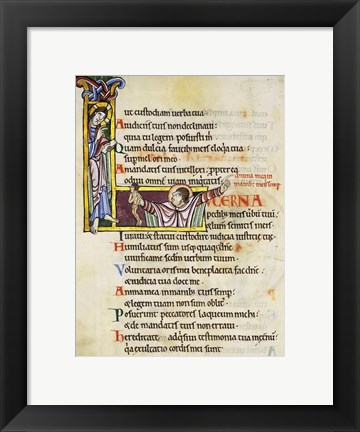 ut custodiam uerba tua
A iudiciis tuis non declinaui:
quia tu legem posuisti m
Q uam dulcia faucibus meis eloq̄a tua:
sup mel ori meo
A mandatis tuis intellexi: pp̄terea
odiui omnē uiam iniq̇tatis
LUCERNA
pedib; meis ūbū tuū:
& lumen semitis meis
I uraui & statui custodire iudicia iusticię tuę
H umiliatus sum usq̇quaq̇; dn̄e
uiuifica me scd̄m uerbum tuum
V oluntaria oris mei beneplacita fac dn̄e:
& iudicia tua doce me
A nima mea in manib; tuis semp̄:
& legem tuam non sum oblit'
P osuerunt peccatores laqueum michi:
& de mandatis tuis non erraui
H ereditate adq̇siui testimonia tua in et̄nū:
q̇a exultatio cordis mei sunt